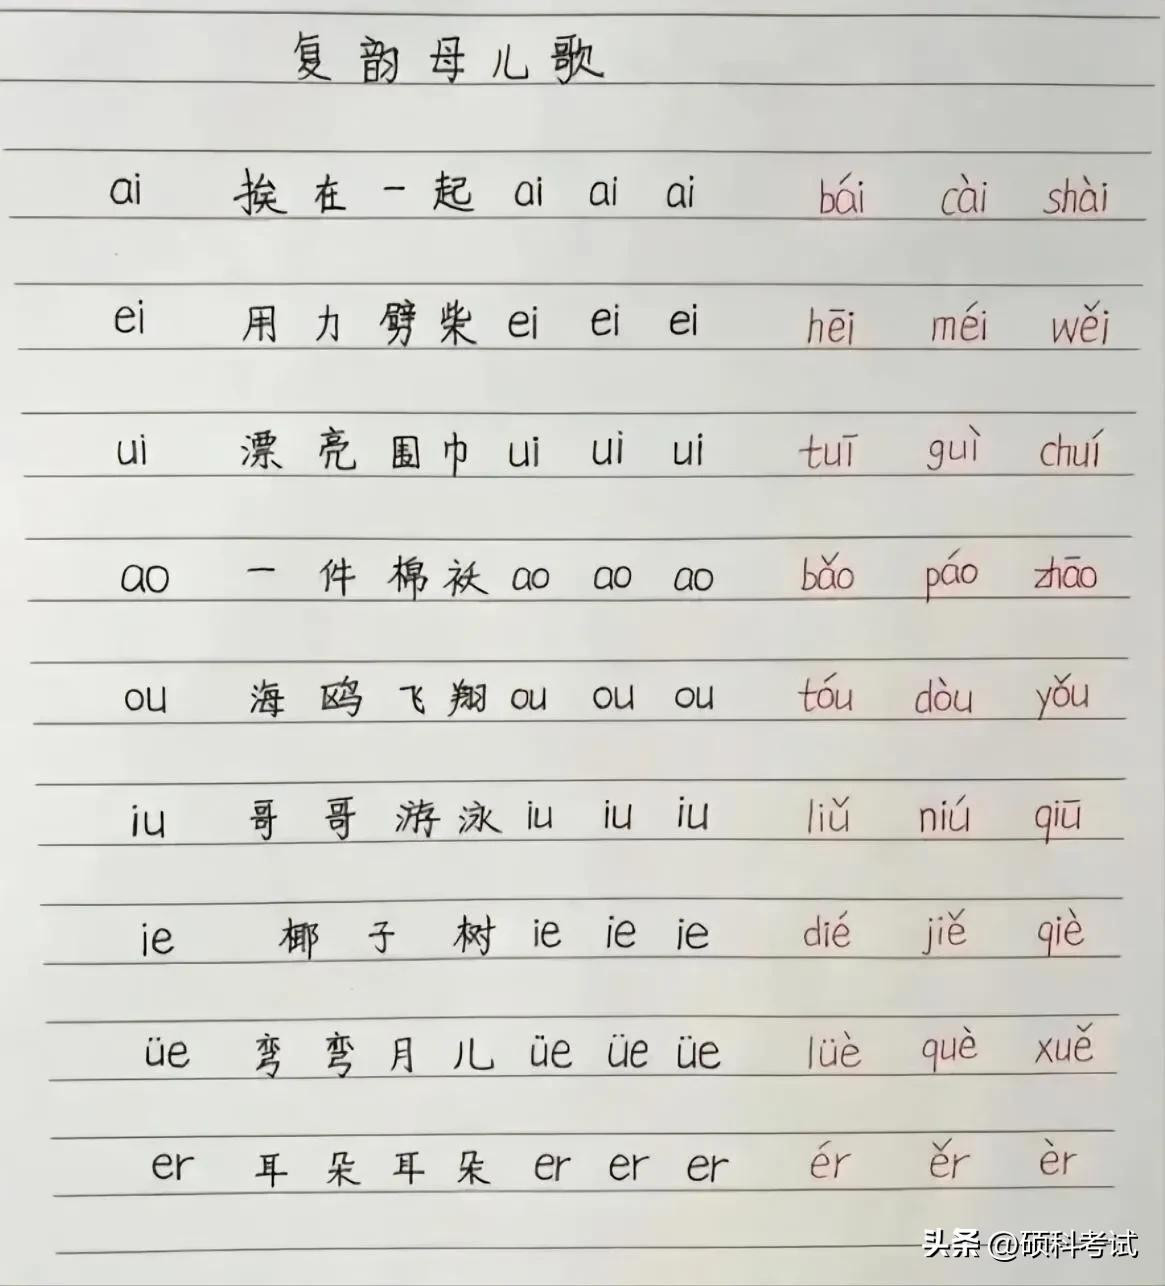 复韵母儿歌
ai 挨在一起 ai ai ai bái cài shài
ei 用力劈柴 ei ei ei hēi méi wěi
ui 漂亮围巾 ui ui ui tuī guì chuí
ao 一件棉袄 ao ao ao bǎo páo zhāo
ou 海鸥飞翔 ou ou ou tóu dòu yǒu
iu 哥哥游泳 iu iu iu liǔ niú qiū
ie 椰子树 ie ie ie dié jiě qiè
üe 弯弯月儿 üe üe üe lüè què xuě
er 耳朵耳朵 er er er ér ěr èr
头条 @硕科考试